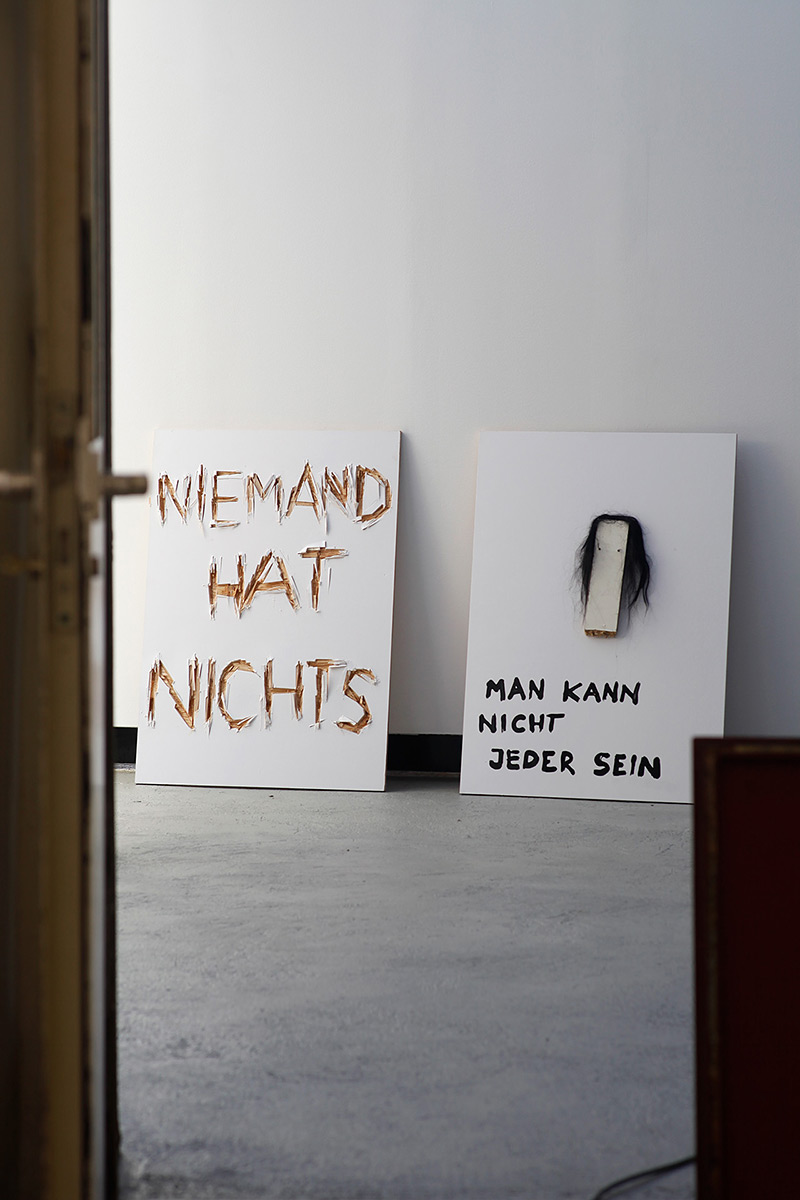 NIEMAND
HAT
NICHTS
MAN KANN
NICHT
JEDER SEIN